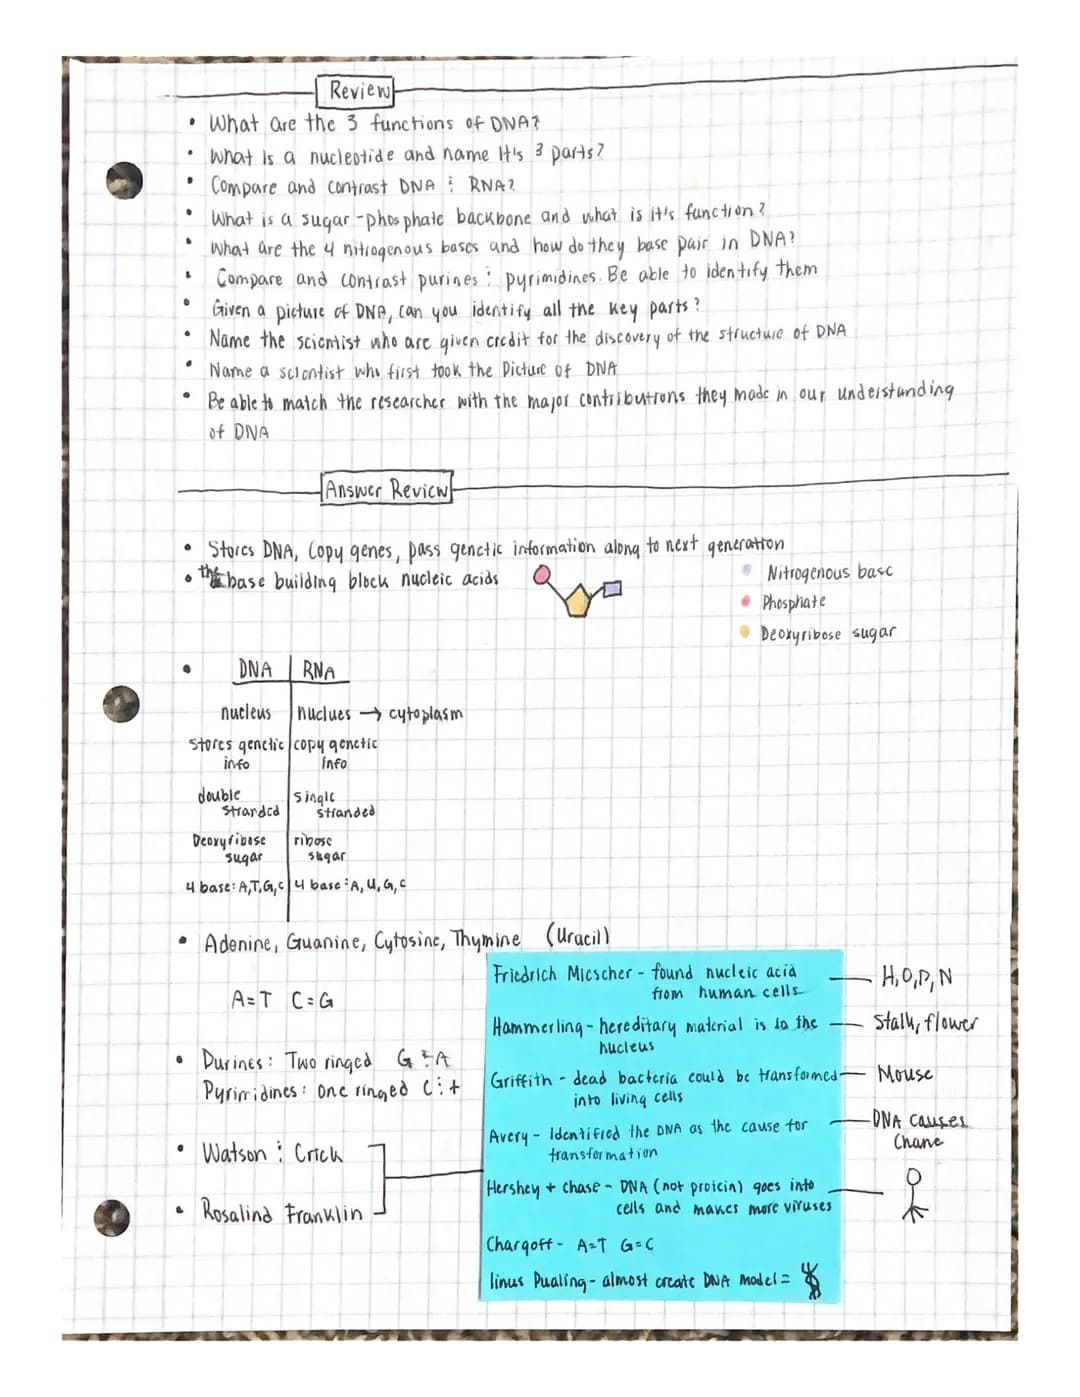 Review
• What are the 3 functions of DNA?
• What is a nucleotide and name It's 3 parts?
• Compare and contrast DNA & RNA?
• What is a sugar-phosphate backbone and what is it's function?
• What are the 4 nitrogenous bases and how do they base pair in DNA?
• Compare and contrast purines & pyrimidines. Be able to identify them
• Given a picture of DNA, can you identify all the key parts?
• Name the scientist who are given credit for the discovery of the structure of DNA
• Name a scientist who first took the Picture of DNA
• Be able to match the researcher with the major contributions they made in our understanding
of DNA
Answer Review
• Stores DNA, Copy genes, pass genetic information along to next generation
• the base building block nucleic acids
Nitrogenous base
Phosphate
Deoxyribose sugar
• DNA | RNA
nucleus | Nuclues → cytoplasm
Stores genetic | copy genetic
info | info
double | Single
stranded | stranded
Deoxyribose | ribose
sugar | sugar
4 base: A,T,G,C | 4 base: A, U, G, C
• Adenine, Guanine, Cytosine, Thymine (Uracil)
A=T C=G
• Purines: Two ringed G & A
Pyrimidines: One ringed C & t
• Watson & Crick
• Rosalind Franklin
Friedrich Miescher - found nucleic acid
from human cells
H, O, P, N
Hammerling - hereditary material is in the
nucleus
Stalk, flower
Griffith - dead bacteria could be transformed
into living cells
Mouse
Avery - Identified the DNA as the cause for
transformation
DNA causes
Chane
Hershey + chase - DNA (not protein) goes into
cells and makes more viruses
Chargoff - A=T G=C
linus Pualing - almost create DNA model =